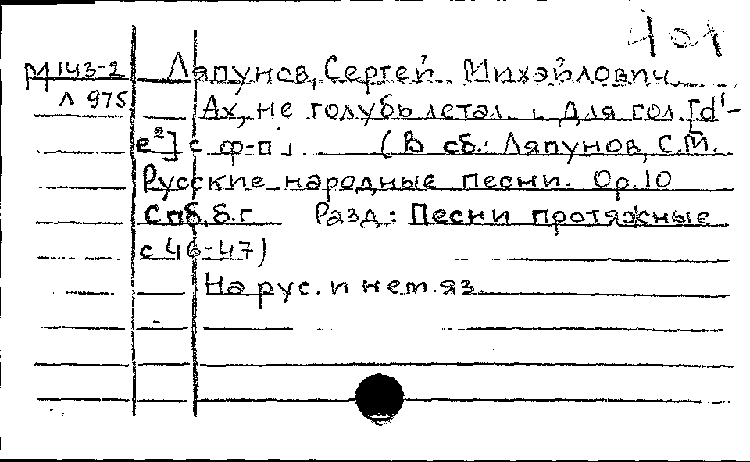 401
М143-2 Ляпунов, Сергей Михайлович
Л 975 Ах, не голубь летал... Для гол. [d¹-
e²] с ф-п. (В сб.: Ляпунов, С.М.
Русские народные песни. Ор.10
Спб, б.г. Разд: Песни протяжные
с 46-47)
На рус. и нем. яз.